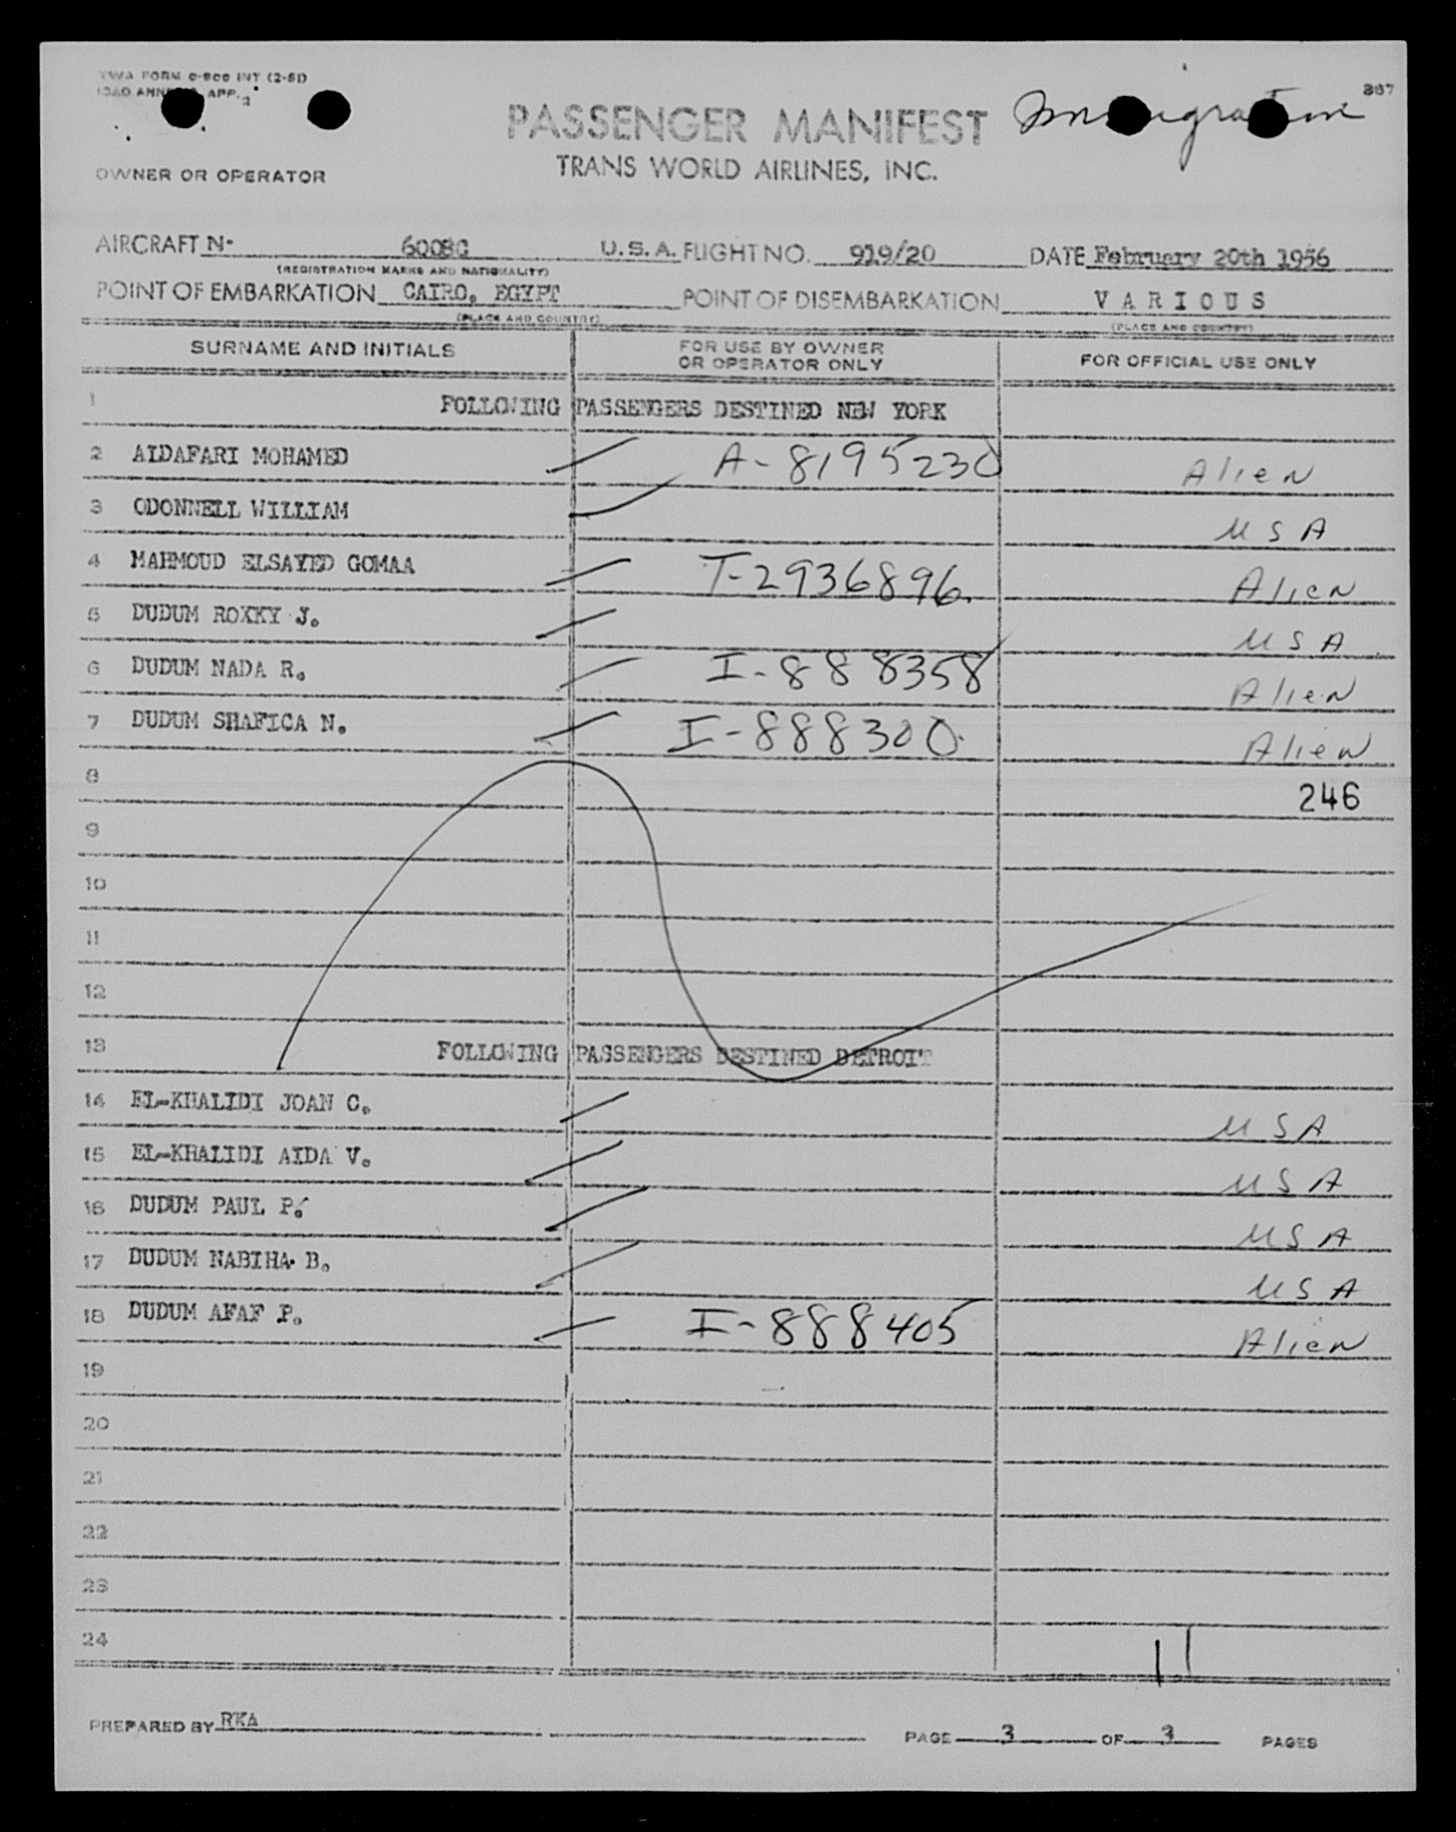 TWA FORM O-800 INT (2-51)
ICAO ANNEX 9, APP. 2
367
PASSENGER MANIFEST Immigration
TRANS WORLD AIRLINES, INC.
OWNER OR OPERATOR
AIRCRAFT N- 6008C U.S.A. FLIGHT NO. 919/20 DATE February 20th 1956
(REGISTRATION MARKS AND NATIONALITY)
POINT OF EMBARKATION CAIRO, EGYPT POINT OF DISEMBARKATION VARIOUS
(PLACE AND COUNTRY) (PLACE AND COUNTRY)
SURNAME AND INITIALS FOR USE BY OWNER OR OPERATOR ONLY FOR OFFICIAL USE ONLY
1 FOLLOWING PASSENGERS DESTINED NEW YORK
2 AIDAFARI MOHAMED A-8195230 Alien
3 ODONNELL WILLIAM USA
4 MAHMOUD ELSAYED GOMAA T-2936896. Alien
5 DUDUM ROXKY J. USA
6 DUDUM NADA R. I-888358 Alien
7 DUDUM SHAFICA N. I-888300. Alien
8 246
9
10
11
12
13 FOLLOWING PASSENGERS DESTINED DETROIT
14 EL-KHALIDI JOAN C. USA
15 EL-KHALIDI AIDA V. USA
16 DUDUM PAUL P. USA
17 DUDUM NABIHA B. USA
18 DUDUM AFAF P. I-888405 Alien
19
20
21
22
23
24 11
PREPARED BY RKA PAGE 3 OF 3 PAGES